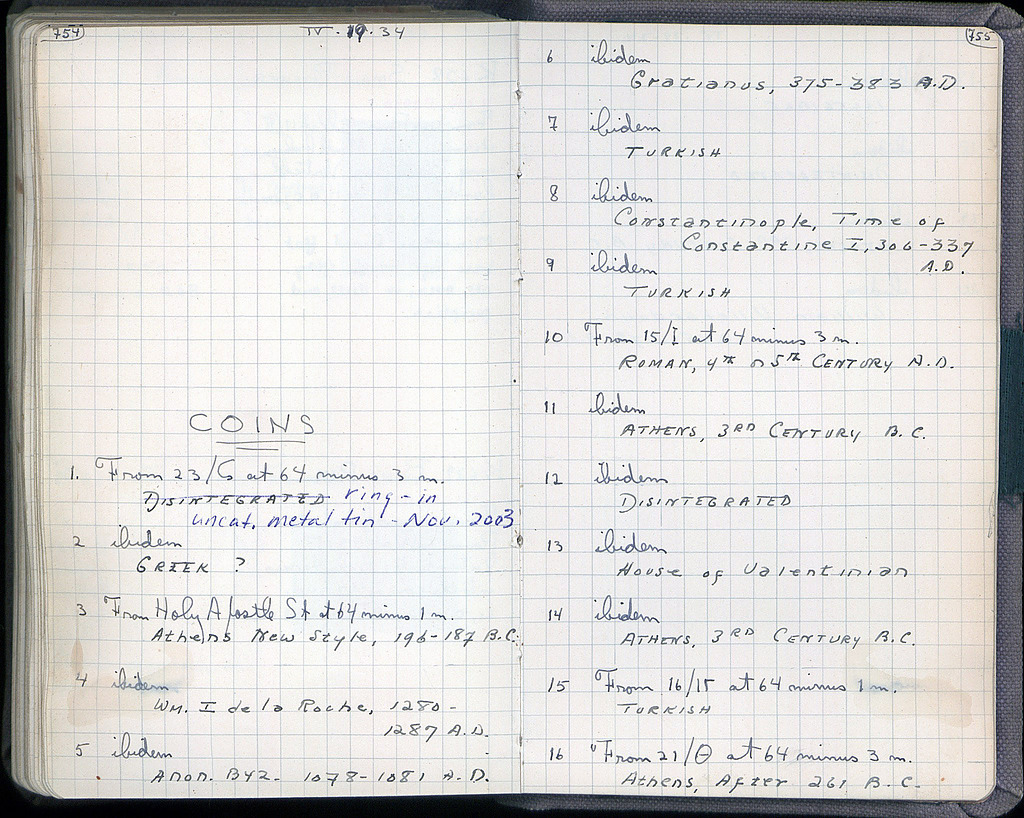 754
IV.19.34
COINS
1. From 23/G at 64 minus 3 m.
DISINTEGRATED ring - in
uncat. metal tin - Nov. 2003
2 ibidem
GREEK ?
3 From Holy Apostle St at 64 minus 1 m.
Athens New Style, 196-187 B.C.
4 ibidem
Wm. I de la Roche, 1280-
1287 A.D.
5 ibidem
Anon. Byz. 1078-1081 A.D.
755
6 ibidem
Gratianus, 375-383 A.D.
7 ibidem
TURKISH
8 ibidem
Constantinople, Time of
Constantine I, 306-337
A.D.
9 ibidem
TURKISH
10 From 15/I at 64 minus 3 m.
ROMAN, 4TH or 5TH CENTURY A.D.
11 ibidem
ATHENS, 3RD CENTURY B.C.
12 ibidem
DISINTEGRATED
13 ibidem
House of Valentinian
14 ibidem
ATHENS, 3RD CENTURY B.C.
15 From 16/ at 64 minus 1 m.
TURKISH
16 "From 21/Θ at 64 minus 3 m.
Athens, After 261 B.C.